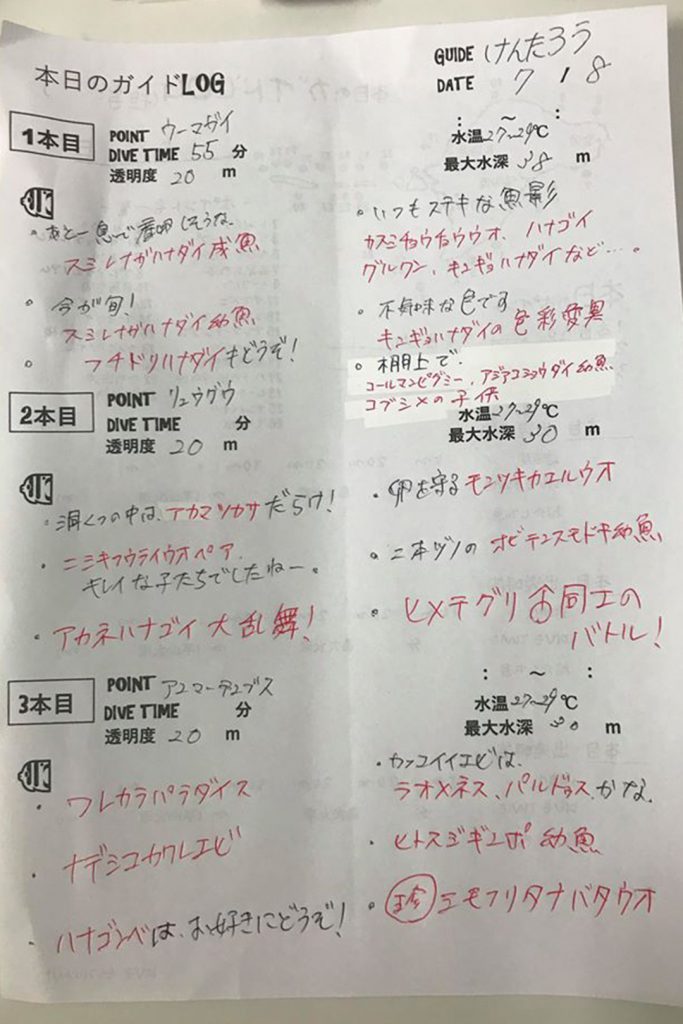 本日のガイドLOG
GUIDE けんたろう
DATE 7 / 8
1本目
POINT ウーマガイ
DIVE TIME 55 分
透明度 20 m
: ～ :
水温27~29℃
最大水深 38 m
・あと一息で産卵しそうな、
スミレナガハナダイ成魚
・今が旬!
スミレナガハナダイ幼魚
・フチドリハナダイもどうぞ!
・いつもステキな魚影
カスミチョウチョウウオ、ハナゴイ
グルクン、キンギョハナダイなど…。
・不気味な色です
キンギョハナダイの色彩変異
・棚上で、
コールマンピグミー、アジアコショウダイ幼魚
コブシメの子供
2本目
POINT リュウグウ
DIVE TIME 分
透明度 20 m
水温27~29℃
最大水深 30 m
・洞くつの中は、アカマツカサだらけ!
・ニシキフウライウオペア、
キレイな子たちでしたねー。
・アカネハナゴイ大乱舞!
・卵を守るモンツキカエルウオ
・二本ヅノのオビテンスモドキ幼魚
・ヒメテグリ♂同士の
バトル!
3本目
POINT アユマーチュブス
DIVE TIME 分
透明度 20 m
: ～ :
水温27~29℃
最大水深 30 m
・ワレカラパラダイス
・ナデシコカクレエビ
・ハナゴンベは、お好きにどうぞ!
・カッコイイエビは、
ラオメネス、パルドゥス、かな、
・ヒトスジギンポ幼魚
・珍 シモフリタナバタウオ